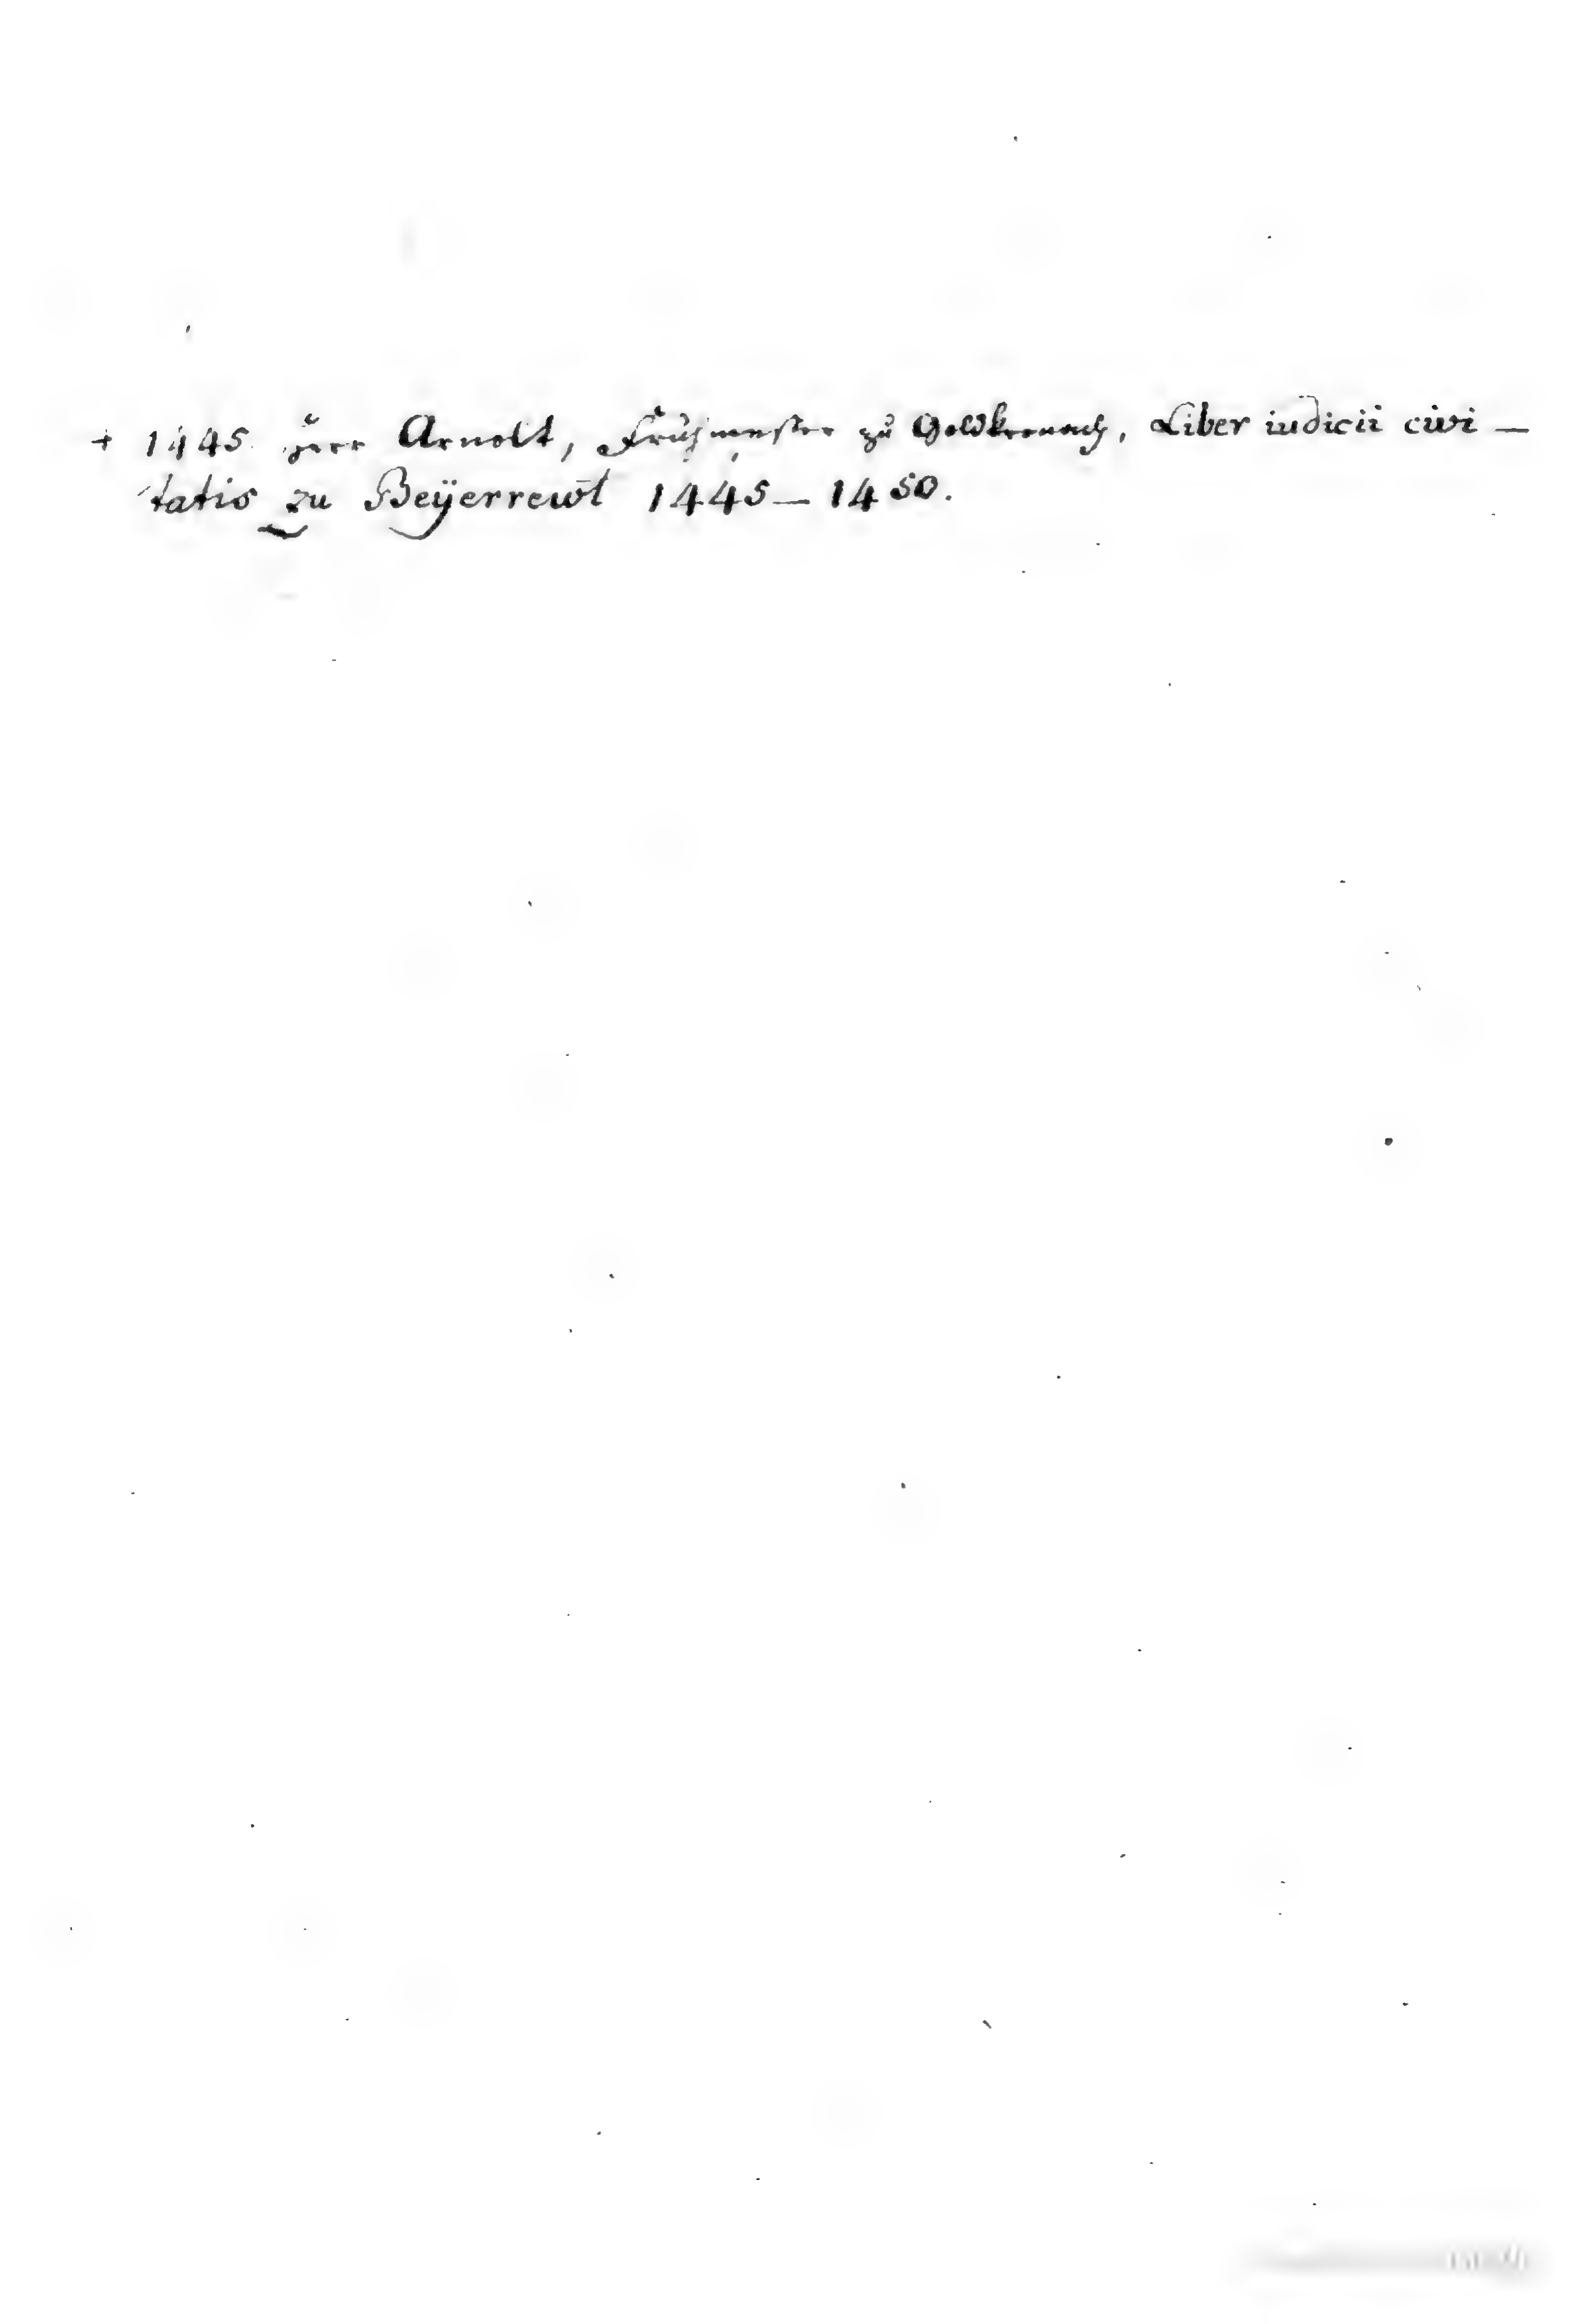 + 1445. Herr Arnolt, Frühmesser zu Goldkronach, Liber iudicii civi –
tatis zu Beÿerrewt 1445 – 1450.